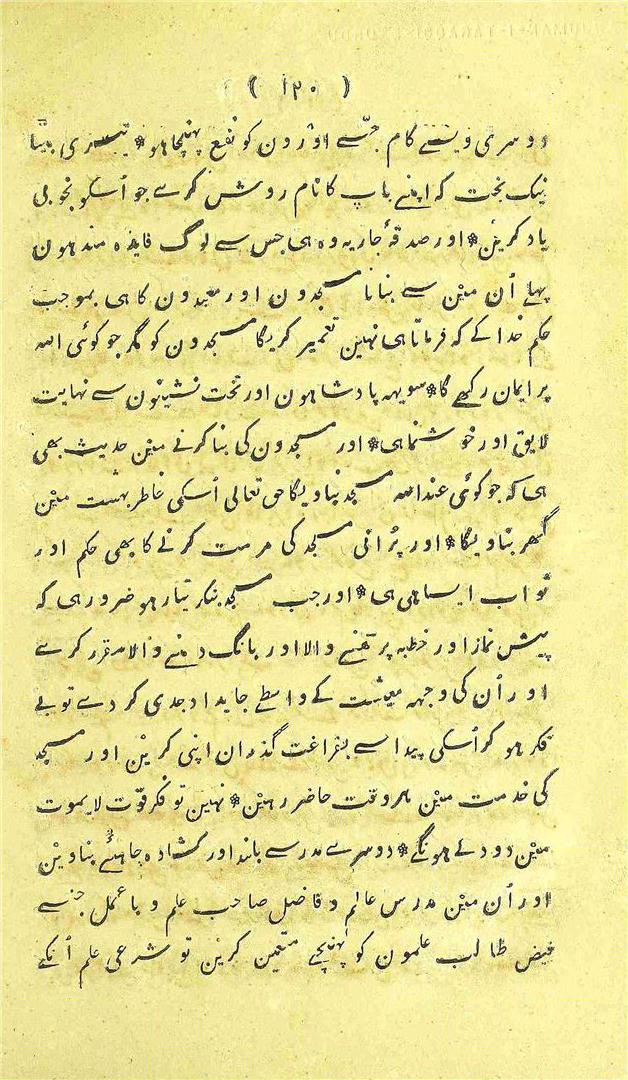 ( ۱۲۰ )
دوسری ویسے کام جسّے اَوْرون کو نفع پہنچا ہو * تیسری بیٹا
نیک بخت کہ اپنے باپ کا نام روشن کرے جو اُسکو بخوبی
یاد کرین * اور صدقۂ جاریہ وہ ہی جس سے لوگ فایدہ مند ہون
پہلے اُن مین سے بنانا مسجدون اور معبدون کا ہی بموجب
حکم خدا کے کہ فرماتا ہی نہین تعمیر کریگا مسجدون کو مگر جو کوئی الله
پر ایمان رکھے گا * سو یہہ پادشاہون اور تخت نشینون سے نہایت
لایق اور خوشنما ہی * اور مسجدون کی بنا کرنے مین حدیث بھی
ہی کہ جو کوئی عند الله مسجد بناویگا حق تعالی اُسکی خاطر بہشت مین
گھر بناویگا * اور پُرانی مسجد کی مرمت کرنے کا بھی حکم اور
ثواب ایسا ہی ہی * اور جب مسجد بنکر تیار ہو ضرور ہی کہ
پیش نماز اور خطبہ پرھنے والا اور بانگ دینے والا مقرر کرے
اور اُن کی وجہہ معیشت کے واسطے جایداد جدی کر دے تو بے
فکر ہو کر اُسکی پیدا سے بفراغت گذران اپنی کرین اور مسجد
کی خدمت مین ہر وقت حاضر رہین * نہین تو فکر قوّت لایموت
مین دودلے ہونگے * دوسرے مدرسے بلند اور کشادہ چاہئے بناوین
اور اُن مین مدرس عالم و فاضل صاحب علم و باعمل جنسے
فیض طالب علمون کو پہنچے متعین کرین تو شرعی علم اُنکے